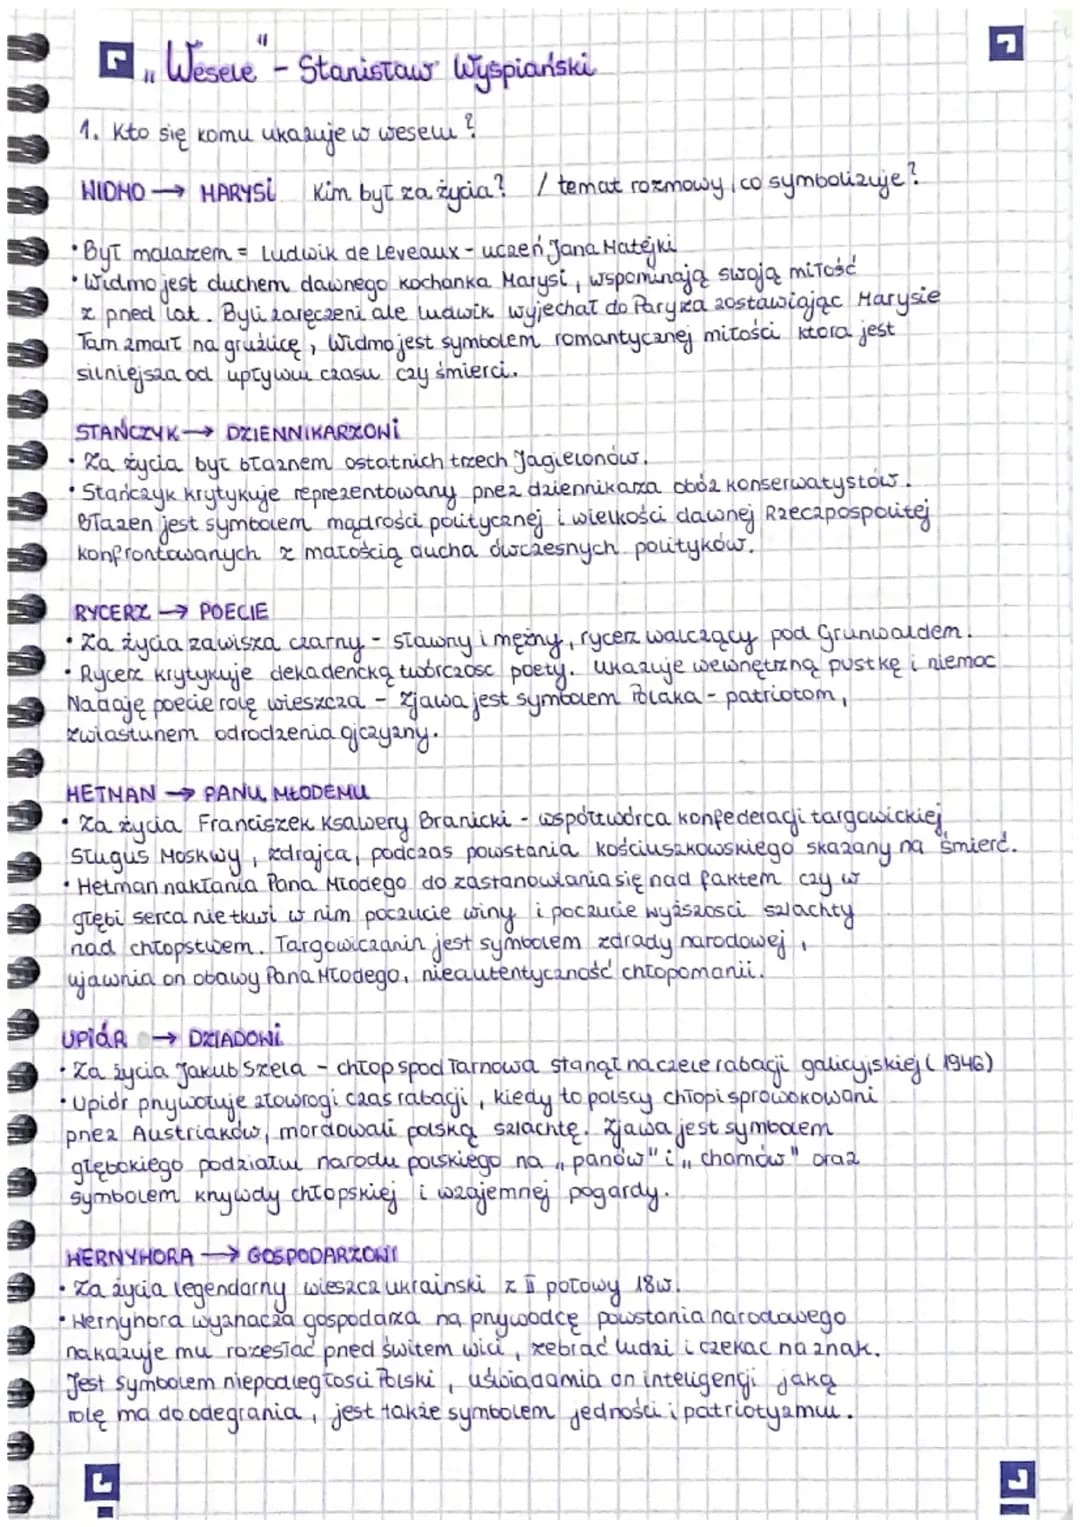 „Wesele" - Stanisław Wyspiański
1. Kto się komu ukazuje w weselu?
WIDMO → MARYSI Kim był za życia? / temat rozmowy, co symbolizuje?
• Był malarzem = Ludwik de Leveaux - uczeń Jana Matejki
• Widmo jest duchem dawnego kochanka Marysi, wspominają swoją miłość
z pned lat. Byli zaręczeni ale ludwik wyjechał do Paryża zostawiając Marysie
Tam zmarł na gruźlicę, Widmo jest symbolem romantycznej miłości ktora jest
silniejsza od upływu czasu czy śmierci.
STAŃCZYK → DZIENNIKARZOWI
• Za życia był błaznem ostatnich trzech Jagielonów.
• Stańczyk krytykuje reprezentowany pnez dziennikaza obóz konserwatystów.
Błazen jest symbolem mądrości politycznej i wielkości dawnej Rzeczpospolitej
konfrontowanych z małością ducha ówczesnych polityków.
RYCERZ → POECIE
• Za życia zawisza czarny - sławny i mężny, rycerz walczący pod Grunwaldem.
• Rycerz krytykuje dekadencką twórczosc poety. ukazuje wewnętrzną pustkę i niemoc
Nadaję poecie rolę wieszcza - Zjawa jest symbolem Polaka - patriotom,
zwiastunem odrodzenia ojczyzny.
HETMAN → PANU MŁODEMU
• Za życia Franciszek Ksawery Branicki - współtwórca konfederacji targowickiej
Sługus Moskwy, zdrajca, podczas powstania kościuszkowskiego skazany na śmierć.
• Hetman nakłania Pana Młodego do zastanowiania się nad faktem czy w
głębi serca nie tkwi w nim poczucie winy i poczucie wyższosci szlachty
nad chłopstwem. Targowiczanin jest symbolem zdrady narodowej,
ujawnia on obawy Pana Młodego, nieautentyczność chłopomanii.
UPIÓR → DZIADOWI
• Za życia Jakub Szela - chłop spod Tarnowa stanął na czele rabacji galicyjskiej (1946)
• Upiór pnywołuje złowrogi czas rabacji, kiedy to polscy chłopi sprowokowani
pnez Austriaków, mordowali polską szlachtę. Zjawa jest symbolem
głębokiego podziału narodu polskiego na „panów" i „chamów" oraz
symbolem knywdy chłopskiej i wzajemnej pogardy.
WERNYHORA → GOSPODARZOWI
• Za życia legendarny wieszcz ukrainski z II połowy 18w.
• Wernyhora wyznacza gospodarza na pnywodcę powstania narodowego
nakazuje mu rozesłać pned świtem wici, zebrać ludzi i czekac na znak.
Jest symbolem niepodległosci Polski, uświadamia on inteligencji jaką
rolę ma do odegrania, jest także symbolem jedności i patriotyzmu.